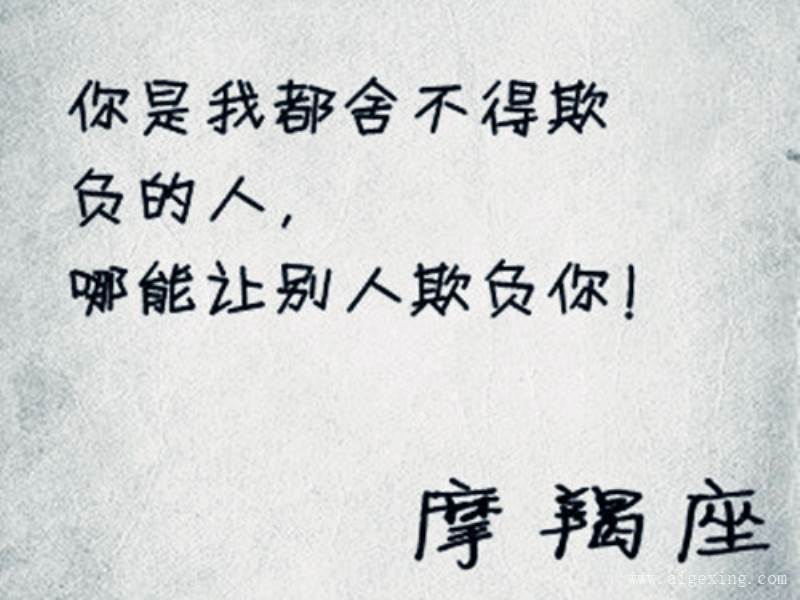 你是我都舍不得欺
负的人,
哪能让别人欺负你!
摩羯座
www.eigexing.com